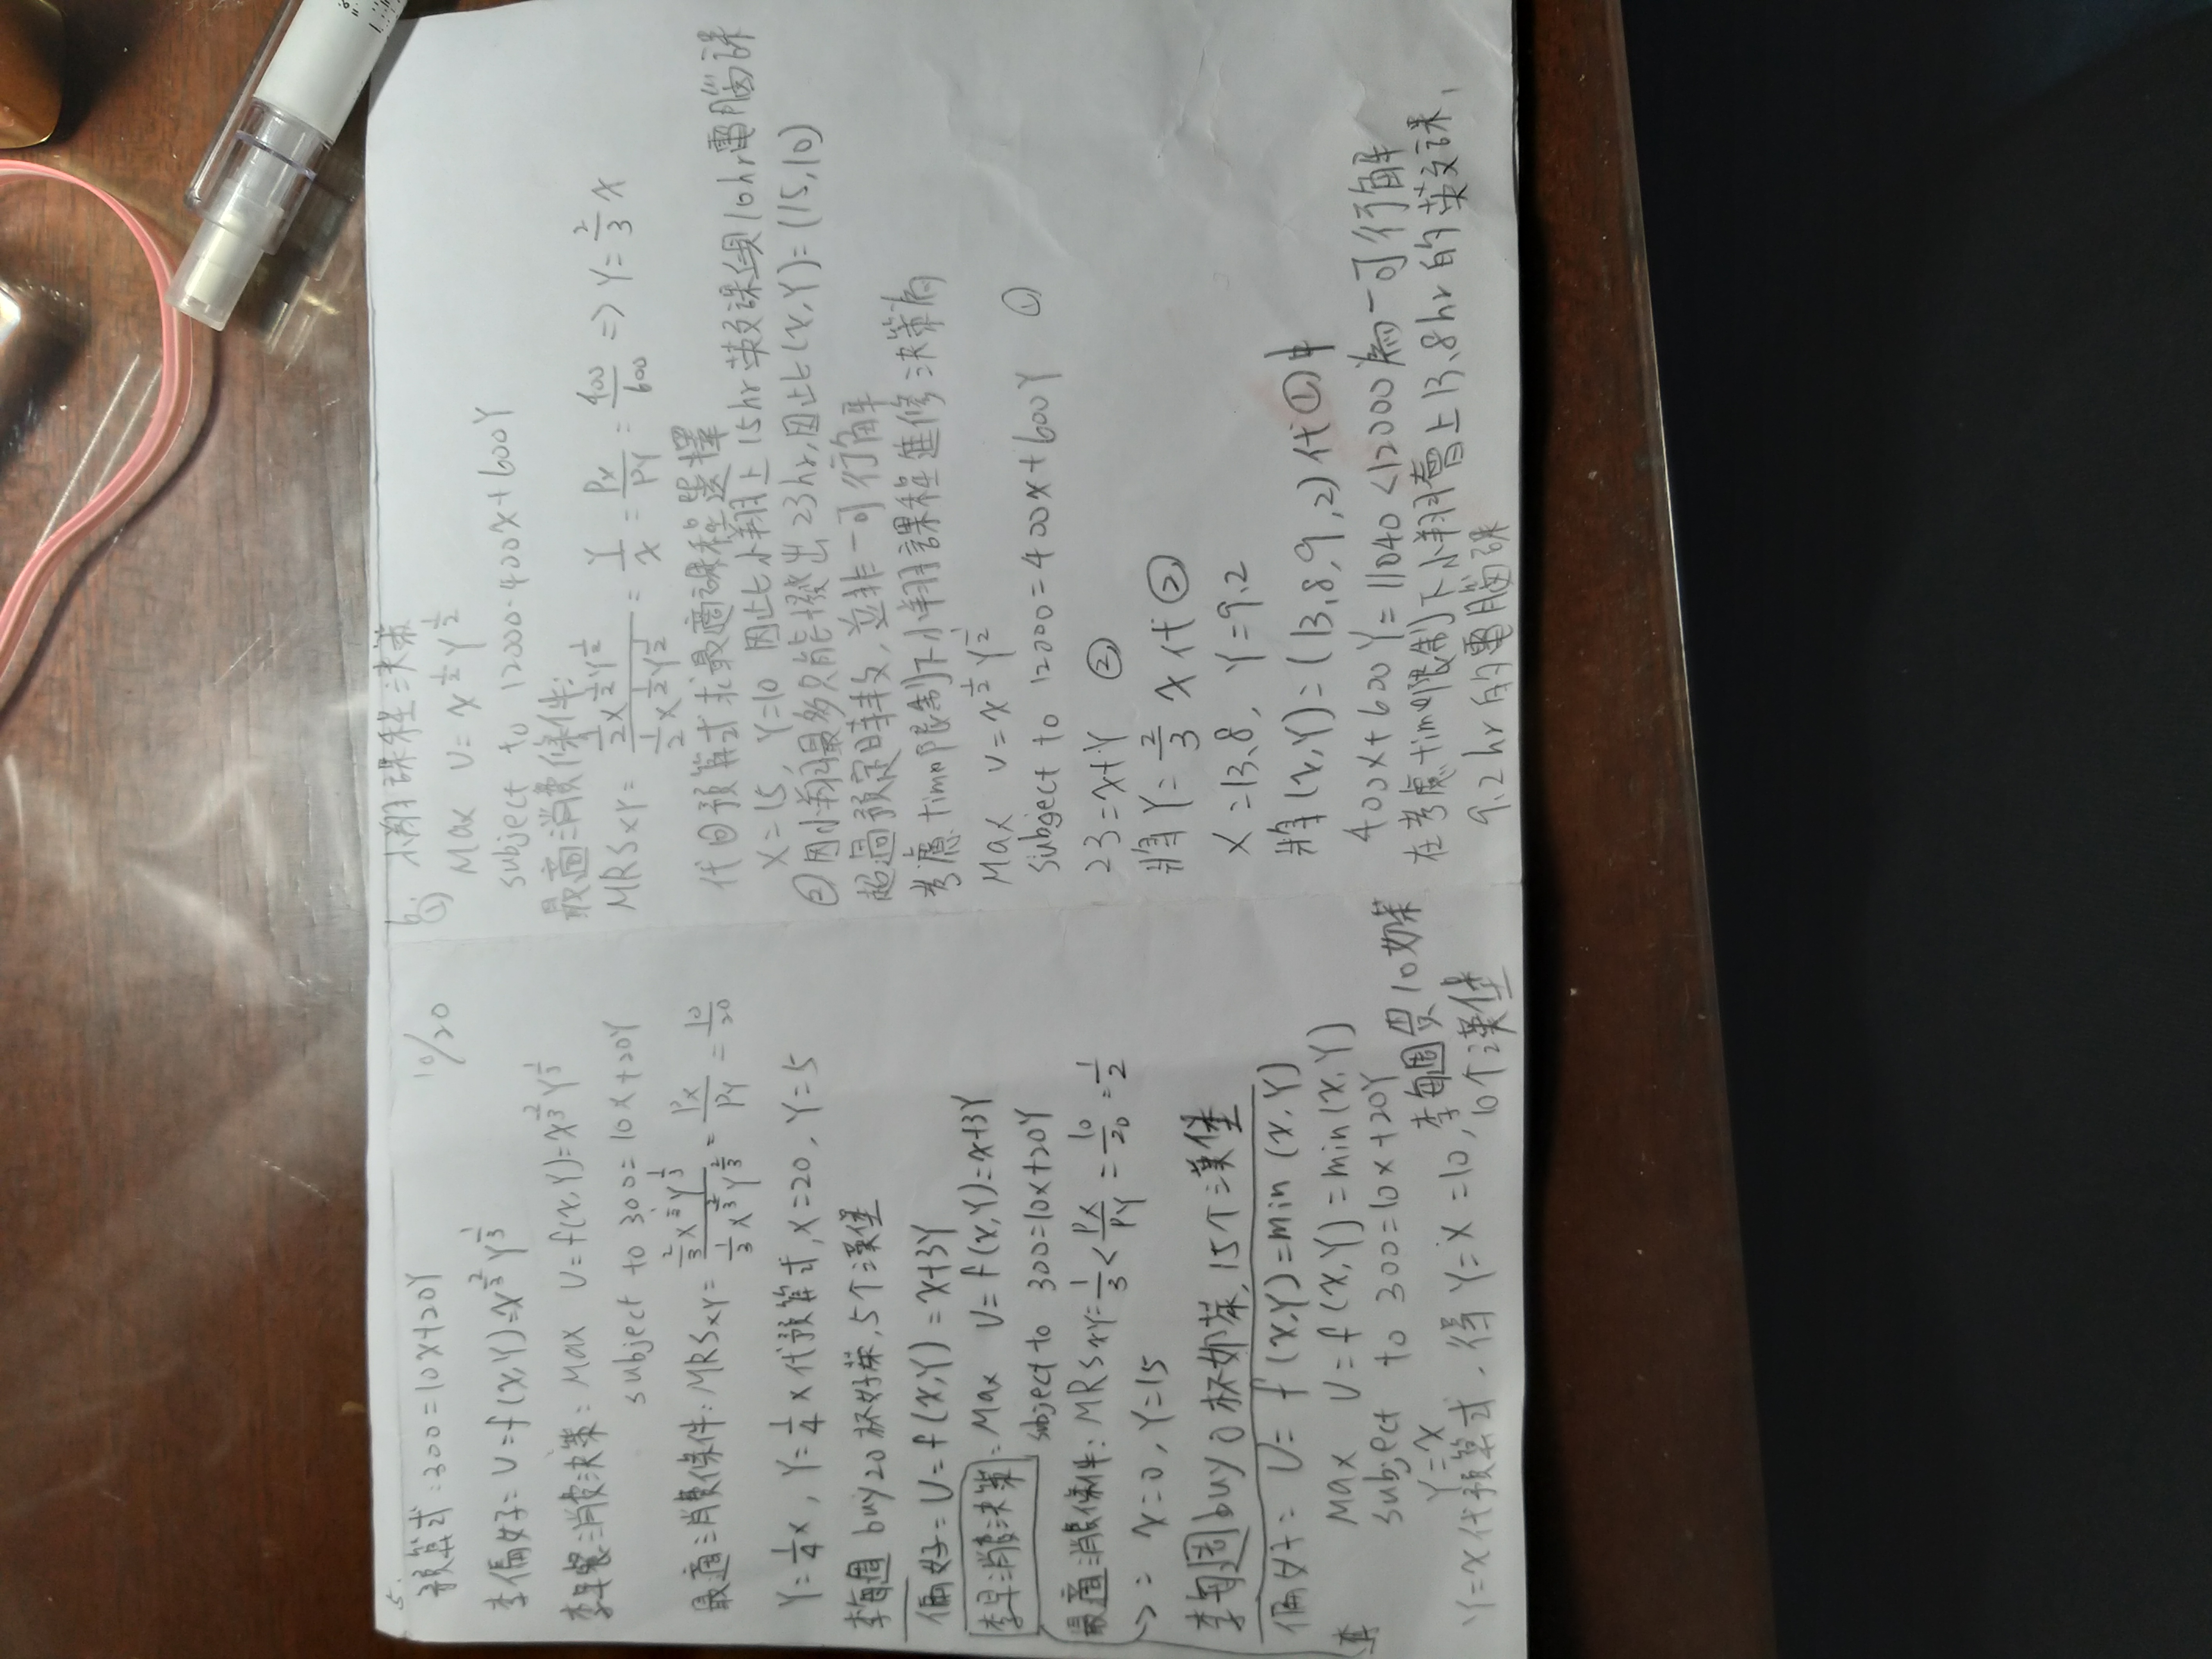 5.
預算式:300=10X+20Y
10/20
李偏好: U=f(X,Y)=X^{2/3}Y^{1/3}
李早餐消費決策: Max U=f(X,Y)=X^{2/3}Y^{1/3}
subject to 300=10X+20Y
最適消費條件: MRSxy= \frac{\frac{2}{3}X^{\frac{1}{3}}Y^{\frac{1}{3}}}{\frac{1}{3}X^{\frac{2}{3}}Y^{\frac{2}{3}}} = \frac{Px}{Py} = \frac{10}{20}
Y=\frac{1}{4}X, Y=\frac{1}{4}X代預算式,X=20, Y=5
李每週 buy20杯奶茶,5个漢堡
偏好: U=f(X,Y)=X+3Y
李早消費決策: Max U=f(X,Y)=X+3Y
subject to 300=10X+20Y
最適消費條件: MRSxy=\frac{1}{3}<\frac{Px}{Py}=\frac{10}{20}=\frac{1}{2}
X=0, Y=15
李每週buy 0杯奶茶, 15个漢堡
偏好: U= f(X,Y)=min(X,Y)
Max U=f(X,Y)=min(X,Y)
李
subject to 300=10X+20Y
Y=X
Y=X代預算式, 得Y=X=10, 李每週買10奶茶
10个漢堡
6. 小翔課程決策
①
Max U=X^{1/2}Y^{1/2}
subject to 12000=400X+600Y
最適消費條件:
MRSxy= \frac{\frac{1}{2}X^{\frac{1}{2}}Y^{\frac{1}{2}}}{\frac{1}{2}X^{\frac{1}{2}}Y^{\frac{1}{2}}} = \frac{Y}{X} = \frac{Px}{Py} = \frac{400}{600} => Y=\frac{2}{3}X
代回預算式求最適課程選擇
X=15, Y=10 因此小翔上15hr英文課與10hr電腦課
②因小翔最多只能撥出23hr,因此(X,Y)=(15,10)
超過預定時数,並非一可行解
考慮time限制下小翔課程進修決策為
Max U=X^{1/2}Y^{1/2}
subject to 12000=400X+600Y ①
23=X+Y ②
將Y=\frac{2}{3}X代②
X=13.8, Y=9.2
將(X,Y)=(13.8,9.2)代①中
400X+600Y=11040<12000為一可行解
在考慮time限制下小翔會上13.8hr的英文課,
9.2hr的電腦課